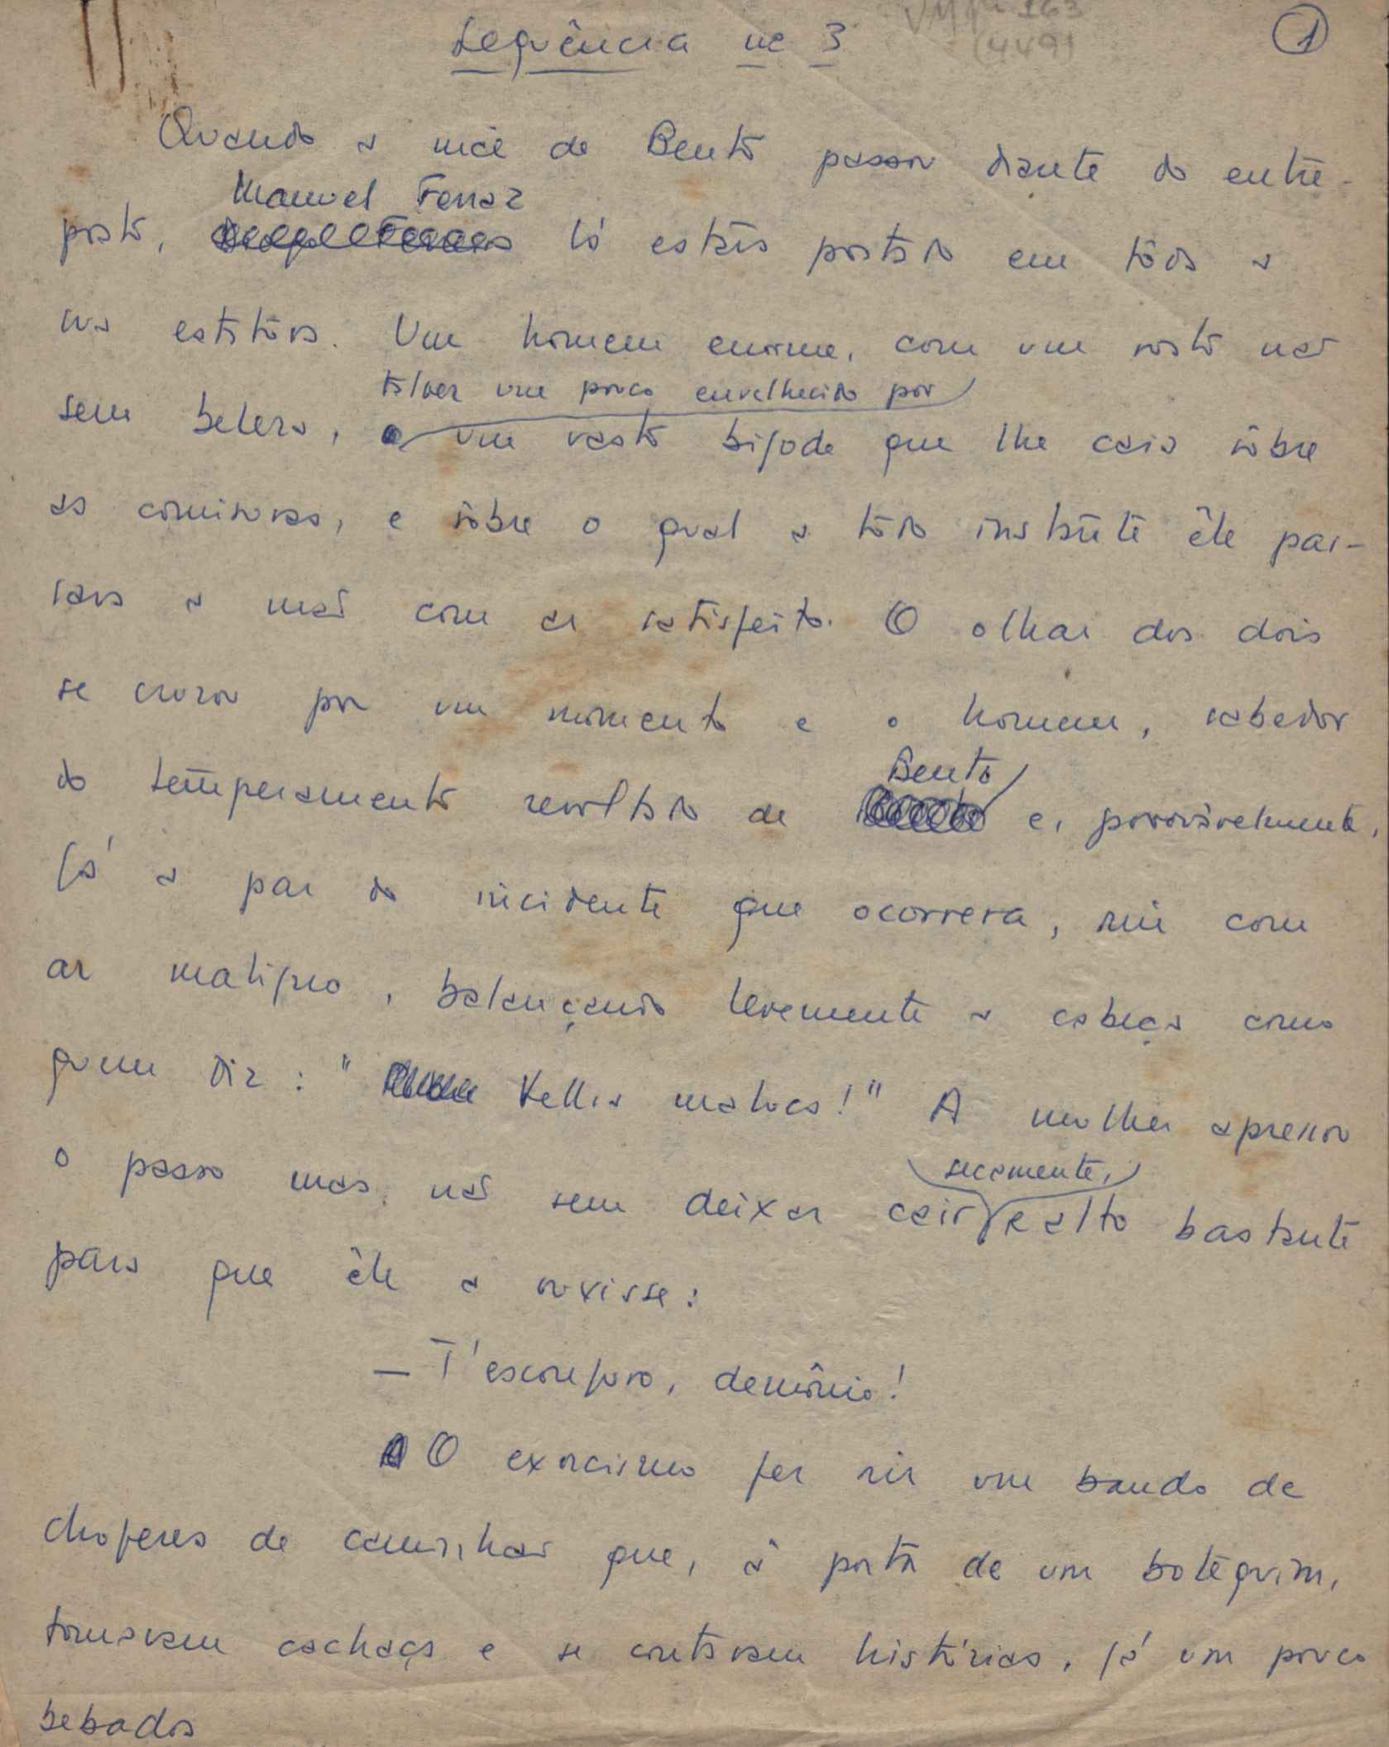 Sequência nº 3
VMpi 163
(449)
1
Quando a mãe de Bento passou diante do entre-
Manuel Ferraz
posto, lá estava postado em tôda a
sua estatura. Um homem enorme, com um rosto não
talvez um pouco envelhecido por
sem beleza, um vasto bigode que lhe caía sôbre
as comissuras, e sôbre o qual a todo instante êle pas-
sava a mão com ar satisfeito. O olhar dos dois
se cruzou por um momento e o homem, sabedor
Bento
do temperamento revoltado de e, provàvelmente,
já a par do incidente que ocorrera, riu com
ar maligno, balançando levemente a cabeça como
quem diz: " Velha maluca!" A mulher apressou
secamente,
o passo mas, não sem deixar cair e alto bastante
para que êle a ouvisse:
— T'esconjuro, demônio!
O exorcismo fez rir um bando de
choferes de caminhão que, à porta de um botequim,
tomavam cachaça e se contavam histórias, já um pouco
bebados